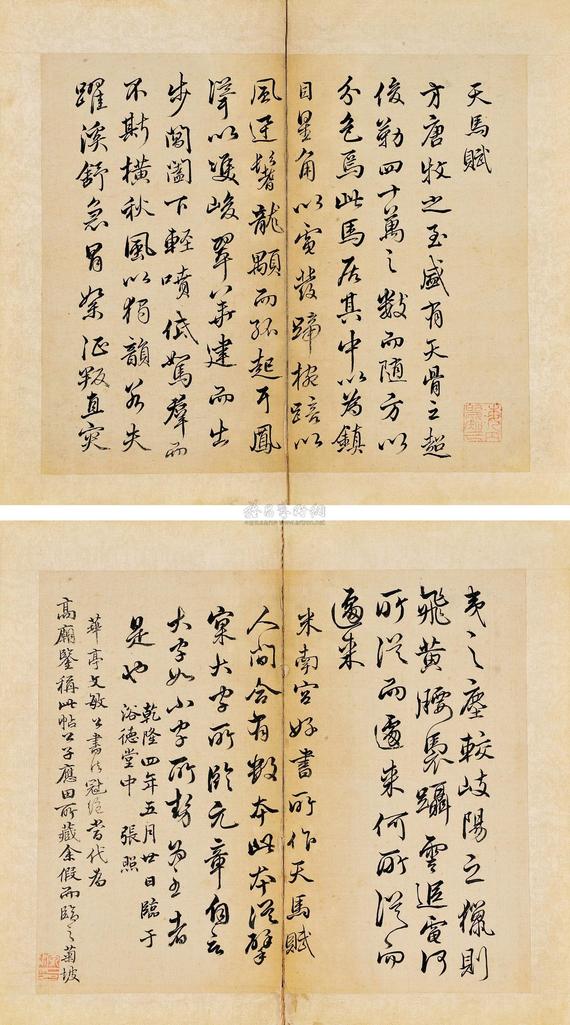 天馬賦
方唐牧之至盛有天骨之超
俊勒四十萬之數而随方以
分色焉此馬居其中以為鎮
目星角以電發蹄椀踣以
風逆鬐龍顒而孤起耳鳳
聳以雙峻翠華建而出
步閶闔下輕噴低駑群而
不嘶橫秋風以獨韻若夫
躍溪舒急冒絮征叛直突
夷之塵較岐陽之獵則
飛黄腰褭躡雲追電何
所從而遽来何所從而
遽来
米南宫好書所作天馬賦
人間合有數本此本從擘
窠大字所臨元章自云
大字如小字所對為至者
是也 乾隆四年五月廿日臨于
浴德堂中 張照
華亭文敏公書法冠絕當代為
高廟鑒稱此帖公子應田所藏余假而臨之菊坡